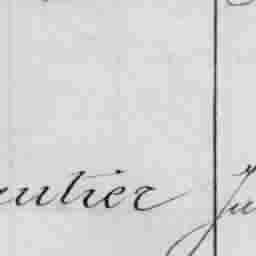 eutier Ju